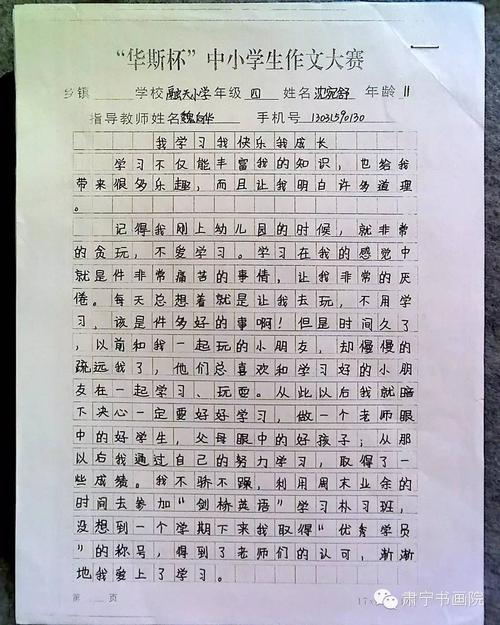 “华斯杯”中小学生作文大赛
乡镇 学校融天小学年级四 姓名沈宛舒 年龄11
指导教师姓名魏白华 手机号
我学习我快乐我成长
学习不仅能丰富我的知识，也给我
带来很多乐趣，而且让我明白许多道理
。
记得我刚上幼儿园的时候，就非常
的贪玩，不爱学习。学习在我的感觉中
就是件非常痛苦的事情，让我非常的厌
倦。每天总想着就是让我去玩，不用学
习，该是件多好的事啊！但是时间久了
，以前和我一起玩的小朋友，却慢慢的
疏远我了，他们总喜欢和学习好的小朋
友在一起学习、玩耍。从此以后我就暗
下决心一定要好好学习，做一个老师眼
中的好学生，父母眼中的好孩子；从那
以后我通过自己的努力学习，取得了一
些成绩。我不骄不躁，利用周末业余的
时间去参加“剑桥英语”学习补习班，
没想到一个学期下来我取得“优秀学员
”的称号，得到了老师们的认可，渐渐
地我爱上了学习。
第 页
肃宁书画院